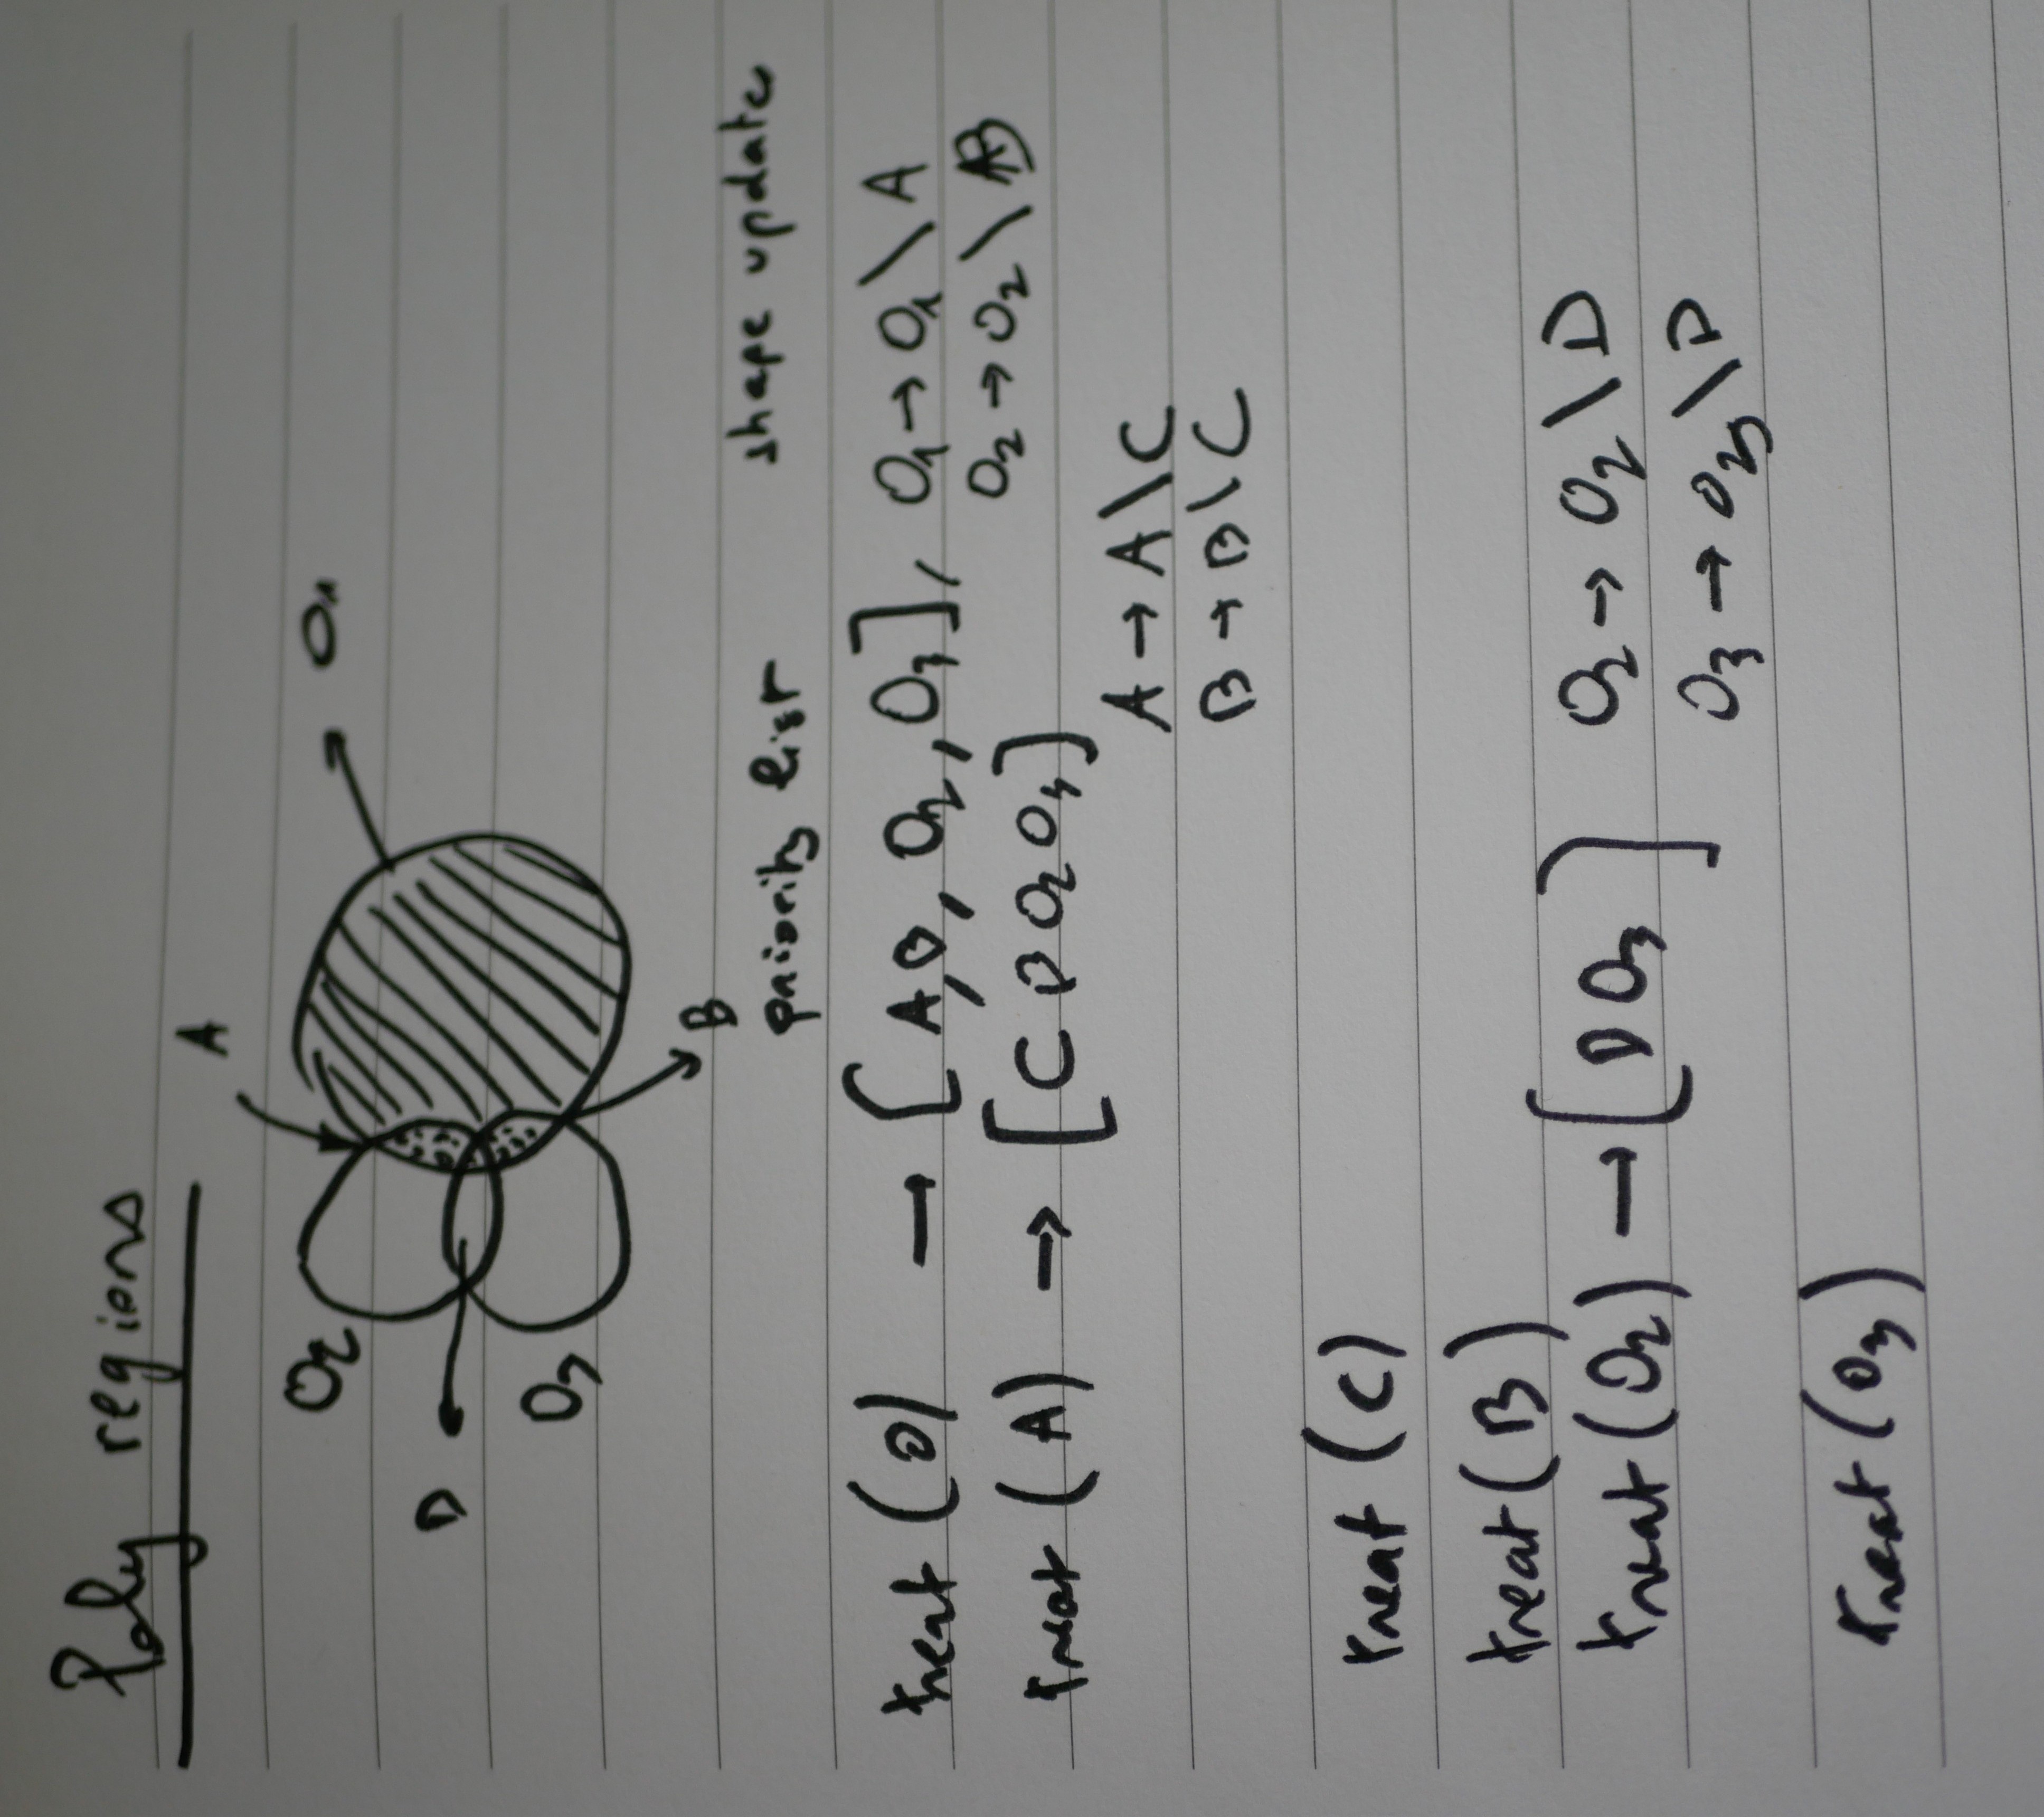 Poly regions
A
O2
O1
D
O3
B
priority list shape update
treat (O) → [A, B, O2, O3], O1 → O1 \ A
O2 → O2 \
treat (A) → [C B O2 O3]
A → A \ C
B → B \ C
treat (C)
treat (B)
treat (O2) → [D O3] O2 → O2 \ D
O3 → O3 \ D
treat (O3)